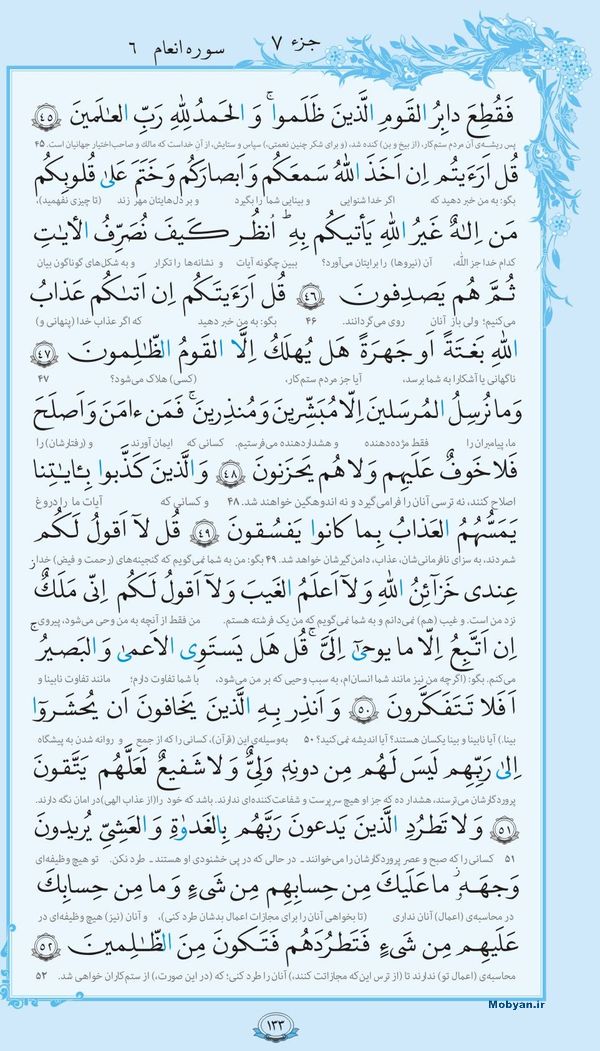 جزء ۷
سوره انعام ۶
فَقُطِعَ دابِرُ القَومِ الَّذینَ ظَلَموا ۚ وَ الحَمدُ لِلّٰهِ رَبِّ العٰلَمینَ ﴿۴۵﴾
پس ریشه‌ی آن مردم ستم‌کار، (از بیخ و بن) کنده شد، (و برای شکر چنین نعمتی،) سپاس و ستایش، از آنِ خداست که مالک و صاحب‌اختیار جهانیان است. ۴۵
قُل اَرَءَیتُم اِن اَخَذَ اللهُ سَمعَکُم وَ اَبصارَکُم وَ خَتَمَ عَلیٰ قُلوبِکُم
بگو: به من خبر دهید که اگر خدا شنوایی و بینایی شما را بگیرد و بر دل‌هایتان مهر زند (تا چیزی نفهمید)،
مَن اِلٰهٌ غَیرُ اللهِ یَأتیکُم بِهِ ۗ اُنظُر کَیفَ نُصَرِّفُ الأٓیٰتِ
کدام خدا جز الله، آن (نیروها) را برایتان می‌آورد؟ ببین چگونه آیات و نشانه‌ها را تکرار و به شکل‌های گوناگون بیان
ثُمَّ هُم یَصدِفونَ ﴿۴۶﴾ قُل اَرَءَیتَکُم اِن اَتٰىکُم عَذابُ
می‌کنیم؛ ولی باز آنان روی می‌گردانند. ۴۶ بگو: به من خبر دهید که اگر عذاب خدا (پنهانی و)
اللهِ بَغتَةً اَو جَهرَةً هَل یُهلَکُ اِلَّا القَومُ الظّٰلِمونَ ﴿۴۷﴾
ناگهانی یا آشکارا به شما برسد، آیا جز مردم ستم‌کار، (کسی) هلاک می‌شود؟ ۴۷
وَ ما نُرسِلُ المُرسَلینَ اِلّا مُبَشِّرینَ وَ مُنذِرینَ ۖ فَمَن ءامَنَ وَ اَصلَحَ
ما، پیامبران را فقط مژده‌دهنده و هشداردهنده می‌فرستیم. کسانی که ایمان آورند و (رفتارشان) را
فَلا خَوفٌ عَلَیهِم وَ لا هُم یَحزَنونَ ﴿۴۸﴾ وَ الَّذینَ کَذَّبوا بِـٔایٰتِنا
اصلاح کنند، نه ترسی آنان را فرامی‌گیرد و نه اندوهگین خواهند شد. ۴۸ و کسانی که آیات ما را دروغ
یَمَسُّهُمُ العَذابُ بِما کانوا یَفسُقونَ ﴿۴۹﴾ قُل لآ اَقولُ لَکُم
شمردند، به سزای نافرمانی‌شان، عذاب، دامن‌گیرشان خواهد شد. ۴۹ بگو: من به شما نمی‌گویم که گنجینه‌های (رحمت و فیض) خدا
عِندی خَزآئِنُ اللهِ وَ لآ اَعلَمُ الغَیبَ وَ لآ اَقولُ لَکُم اِنّی مَلَکٌ
نزد من است. و غیب (هم) نمی‌دانم و به شما نمی‌گویم که من یک فرشته هستم. من فقط از آنچه به من وحی می‌شود، پیروی
اِن اَتَّبِعُ اِلّا ما یوحیٰٓ اِلَیَّ ۚ قُل هَل یَستَوِی الاَعمیٰ وَ البَصیرُ ۚ
می‌کنم. بگو: (اگرچه من نیز مانند شما انسان‌ام، به سبب وحیی که بر من می‌شود، با شما تفاوت دارم؛ مانند تفاوت نابینا و
اَفَلا تَتَفَکَّرونَ ﴿۵۰﴾ وَ اَنذِر بِهِ الَّذینَ یَخافونَ اَن یُحشَروٓا
بینا.) آیا نابینا و بینا یکسان هستند؟ آیا اندیشه نمی‌کنید؟ ۵۰ به‌وسیله‌ی این (قرآن)، کسانی را که از جمع و روانه شدن به پیشگاه
اِلیٰ رَبِّهِم لَیسَ لَهُم مِن دونِهِ وَلِیٌّ وَ لا شَفیعٌ لَعَلَّهُم یَتَّقونَ
پروردگارشان می‌ترسند، هشدار ده که جز او هیچ سرپرست و شفاعت‌کننده‌ای ندارند. باشد که خود را (از عذاب الهی) در امان نگه دارند.
﴿۵۱﴾ وَ لا تَطرُدِ الَّذینَ یَدعونَ رَبَّهُم بِالغَدوٰةِ وَ العَشِیِّ یُریدونَ
۵۱ کسانی را که صبح و عصر پروردگارشان را می‌خوانند ـ در حالی که در پی خشنودی او هستند ـ طرد نکن. تو هیچ وظیفه‌ای
وَجهَهُ ۖ ما عَلَیکَ مِن حِسابِهِم مِن شَیءٍ وَ ما مِن حِسابِکَ
در محاسبه‌ی (اعمال) آنان نداری (تا بخواهی آنان را برای مجازات اعمال بدشان طرد کنی)، و آنان (نیز) هیچ وظیفه‌ای در
عَلَیهِم مِن شَیءٍ فَتَطرُدَهُم فَتَکونَ مِنَ الظّٰلِمینَ ﴿۵۲﴾
محاسبه‌ی (اعمال تو) ندارند تا (از ترس این‌که مجازاتت کنند،) آنان را طرد کنی؛ که (در این صورت،) از ستم‌کاران خواهی شد. ۵۲
Mobyan.ir
۱۳۳